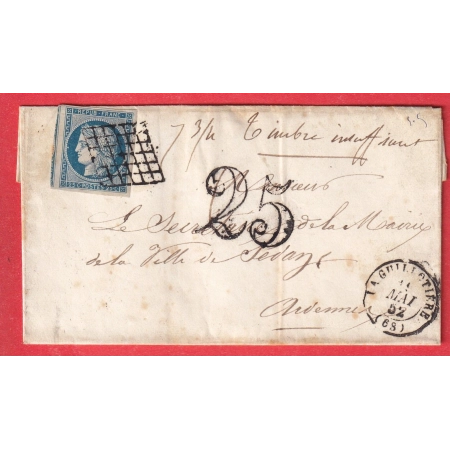 REPUB. FRANC.
25 C. POSTES 25 C.
7 3/4 Timbre insuffisant
25
Monsieur
Le Secrétaire de la Mairie
de la Ville de Sedan
Ardennes
LA GUILLOTIÈRE
MAI
52
(68)